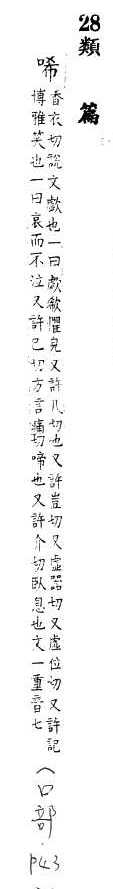 28類
篇
唏
香衣切說文歔也一曰歔欷懼皃又許几切也又許豈切又虛器切又虛位切又許記
博雅笑也一曰哀而不泣又許已切方言痛切啼也又許介切臥息也文一重音七
(口部
P43